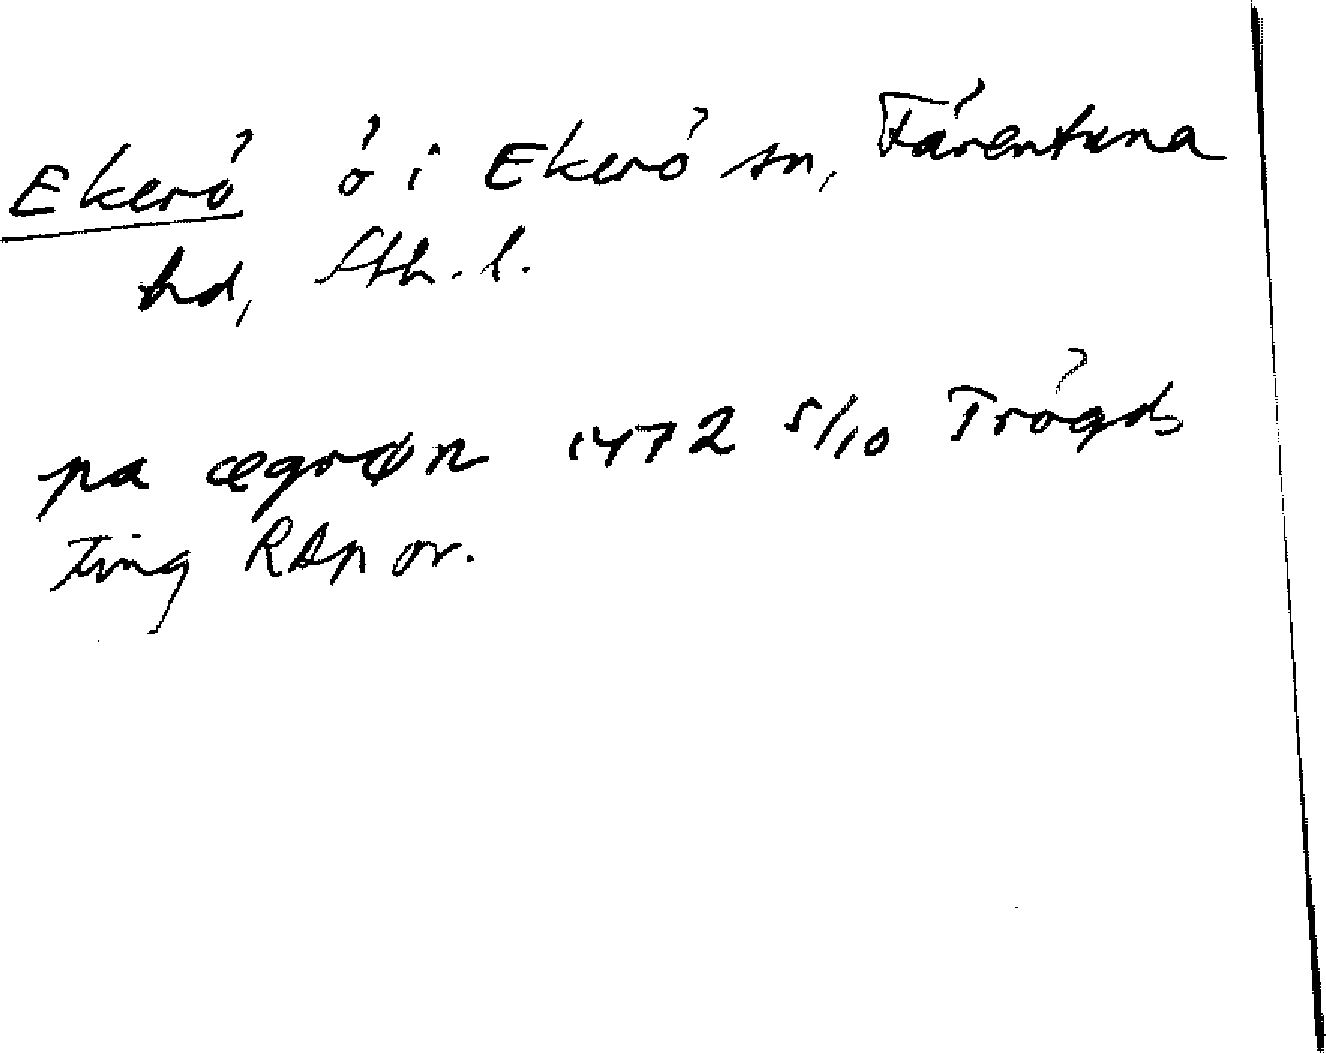 Ekerö ö i Ekerö sn, Färentuna
hd, Sth. l.
pa ægrøn 1472 5/10 Trögds
ting RAp or.